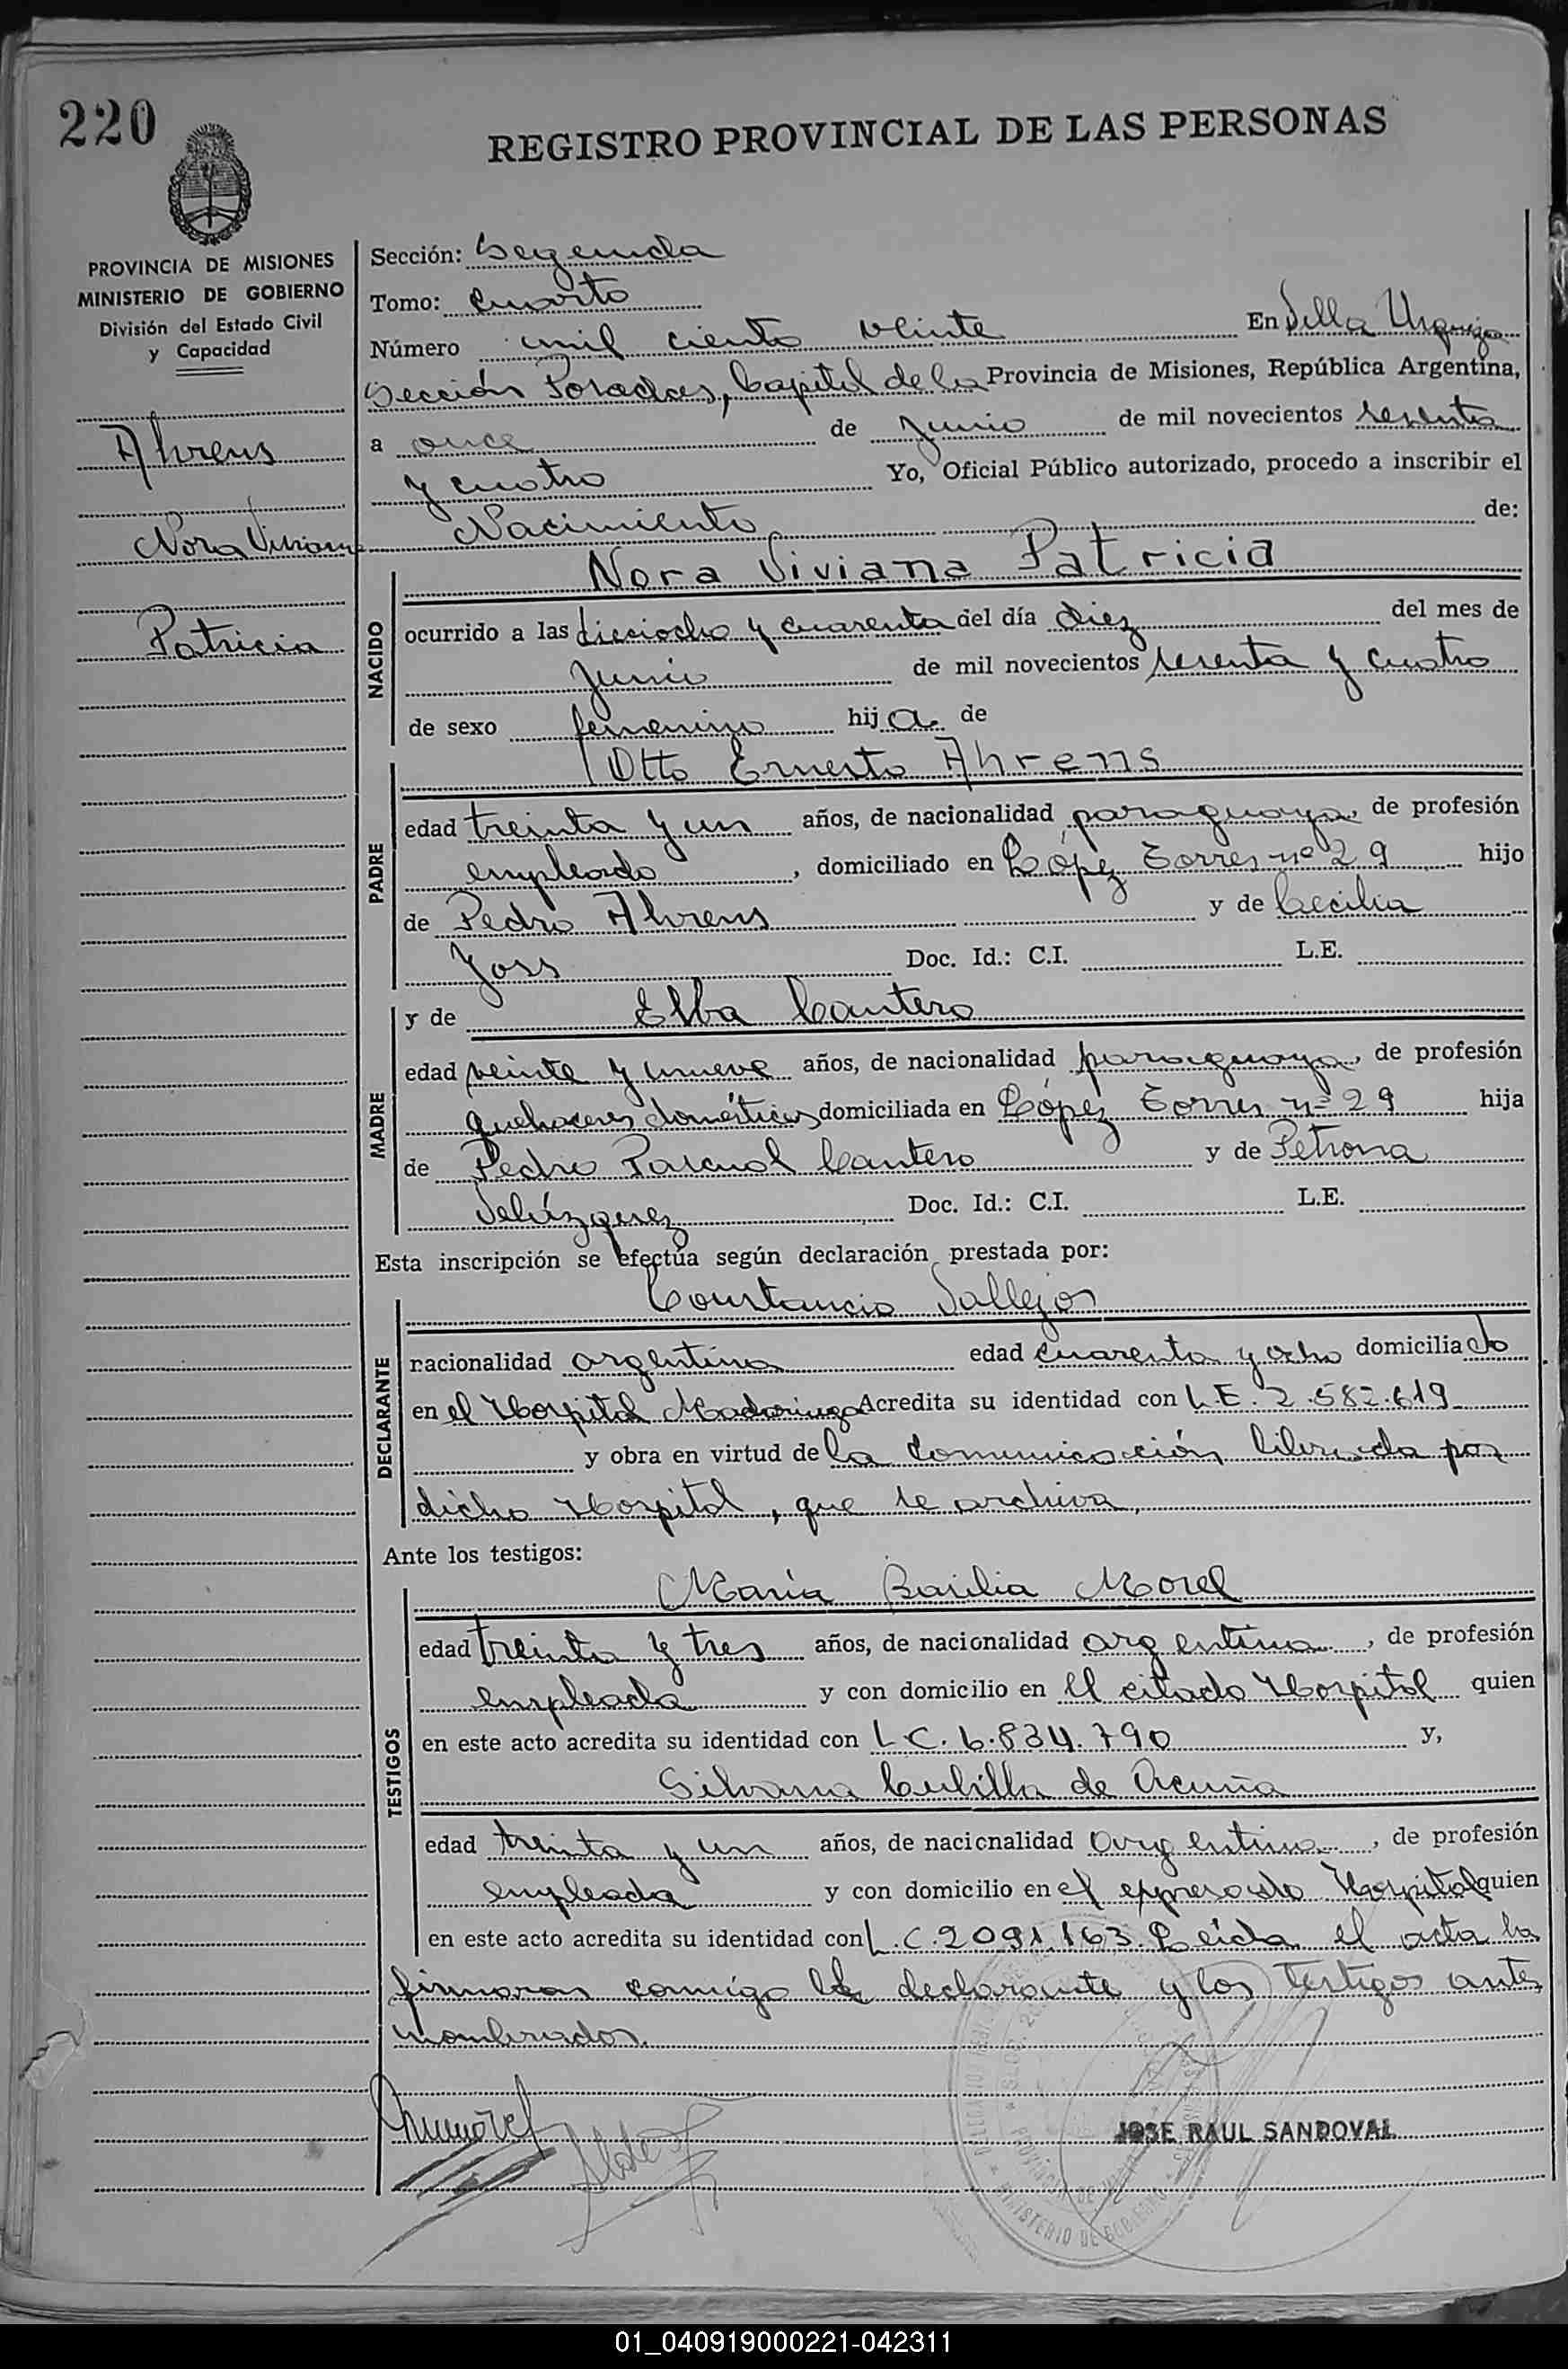 220
REGISTRO PROVINCIAL DE LAS PERSONAS
PROVINCIA DE MISIONES
MINISTERIO DE GOBIERNO
División del Estado Civil
y Capacidad
Ahrens
Nora Viviana
Patricia
Sección: Segunda
Tomo: cuarto
Número mil ciento veinte En Villa Urquiza
Sección Posadas, Capital de la Provincia de Misiones, República Argentina,
a once de Junio de mil novecientos sesenta
y cuatro Yo, Oficial Público autorizado, procedo a inscribir el
Nacimiento de:
NACIDO
Nora Viviana Patricia
ocurrido a las dieciocho y cuarenta del día diez del mes de
Junio de mil novecientos sesenta y cuatro
de sexo femenino hija de
PADRE
Otto Ernesto Ahrens
edad treinta y un años, de nacionalidad paraguaya, de profesión
empleado, domiciliado en López Torres nº 29 hijo
de Pedro Ahrens y de Cecilia
Joss Doc. Id.: C.I. L.E.
MADRE
y de Elba Cantero
edad veinte y nueve años, de nacionalidad paraguaya, de profesión
quehaceres domésticos domiciliada en López Torres nº 29 hija
de Pedro Pascual Cantero y de Petrona
Velázquez Doc. Id.: C.I. L.E.
Esta inscripción se efectúa según declaración prestada por:
DECLARANTE
Constancio Vallejos
nacionalidad argentina edad cuarenta y ocho domiciliado
en el Hospital Madariaga Acredita su identidad con L.E. 2.582.619
y obra en virtud de la comunicación librada por
dicho Hospital, que se archiva,
Ante los testigos:
TESTIGOS
María Basilia Morel
edad treinta y tres años, de nacionalidad argentina, de profesión
empleada y con domicilio en el citado Hospital quien
en este acto acredita su identidad con L.C. 6.834.790 y,
Silvana Cubilla de Acuña
edad treinta y un años, de nacionalidad argentina, de profesión
empleada y con domicilio en el expresado Hospital quien
en este acto acredita su identidad con L.C. 2091.163. Leída el acta la
firmaron conmigo el declarante y los testigos antes
nombrados.
JOSE RAUL SANDOVAL
MINISTERIO DE GOBIERNO
01_040919000221-042311